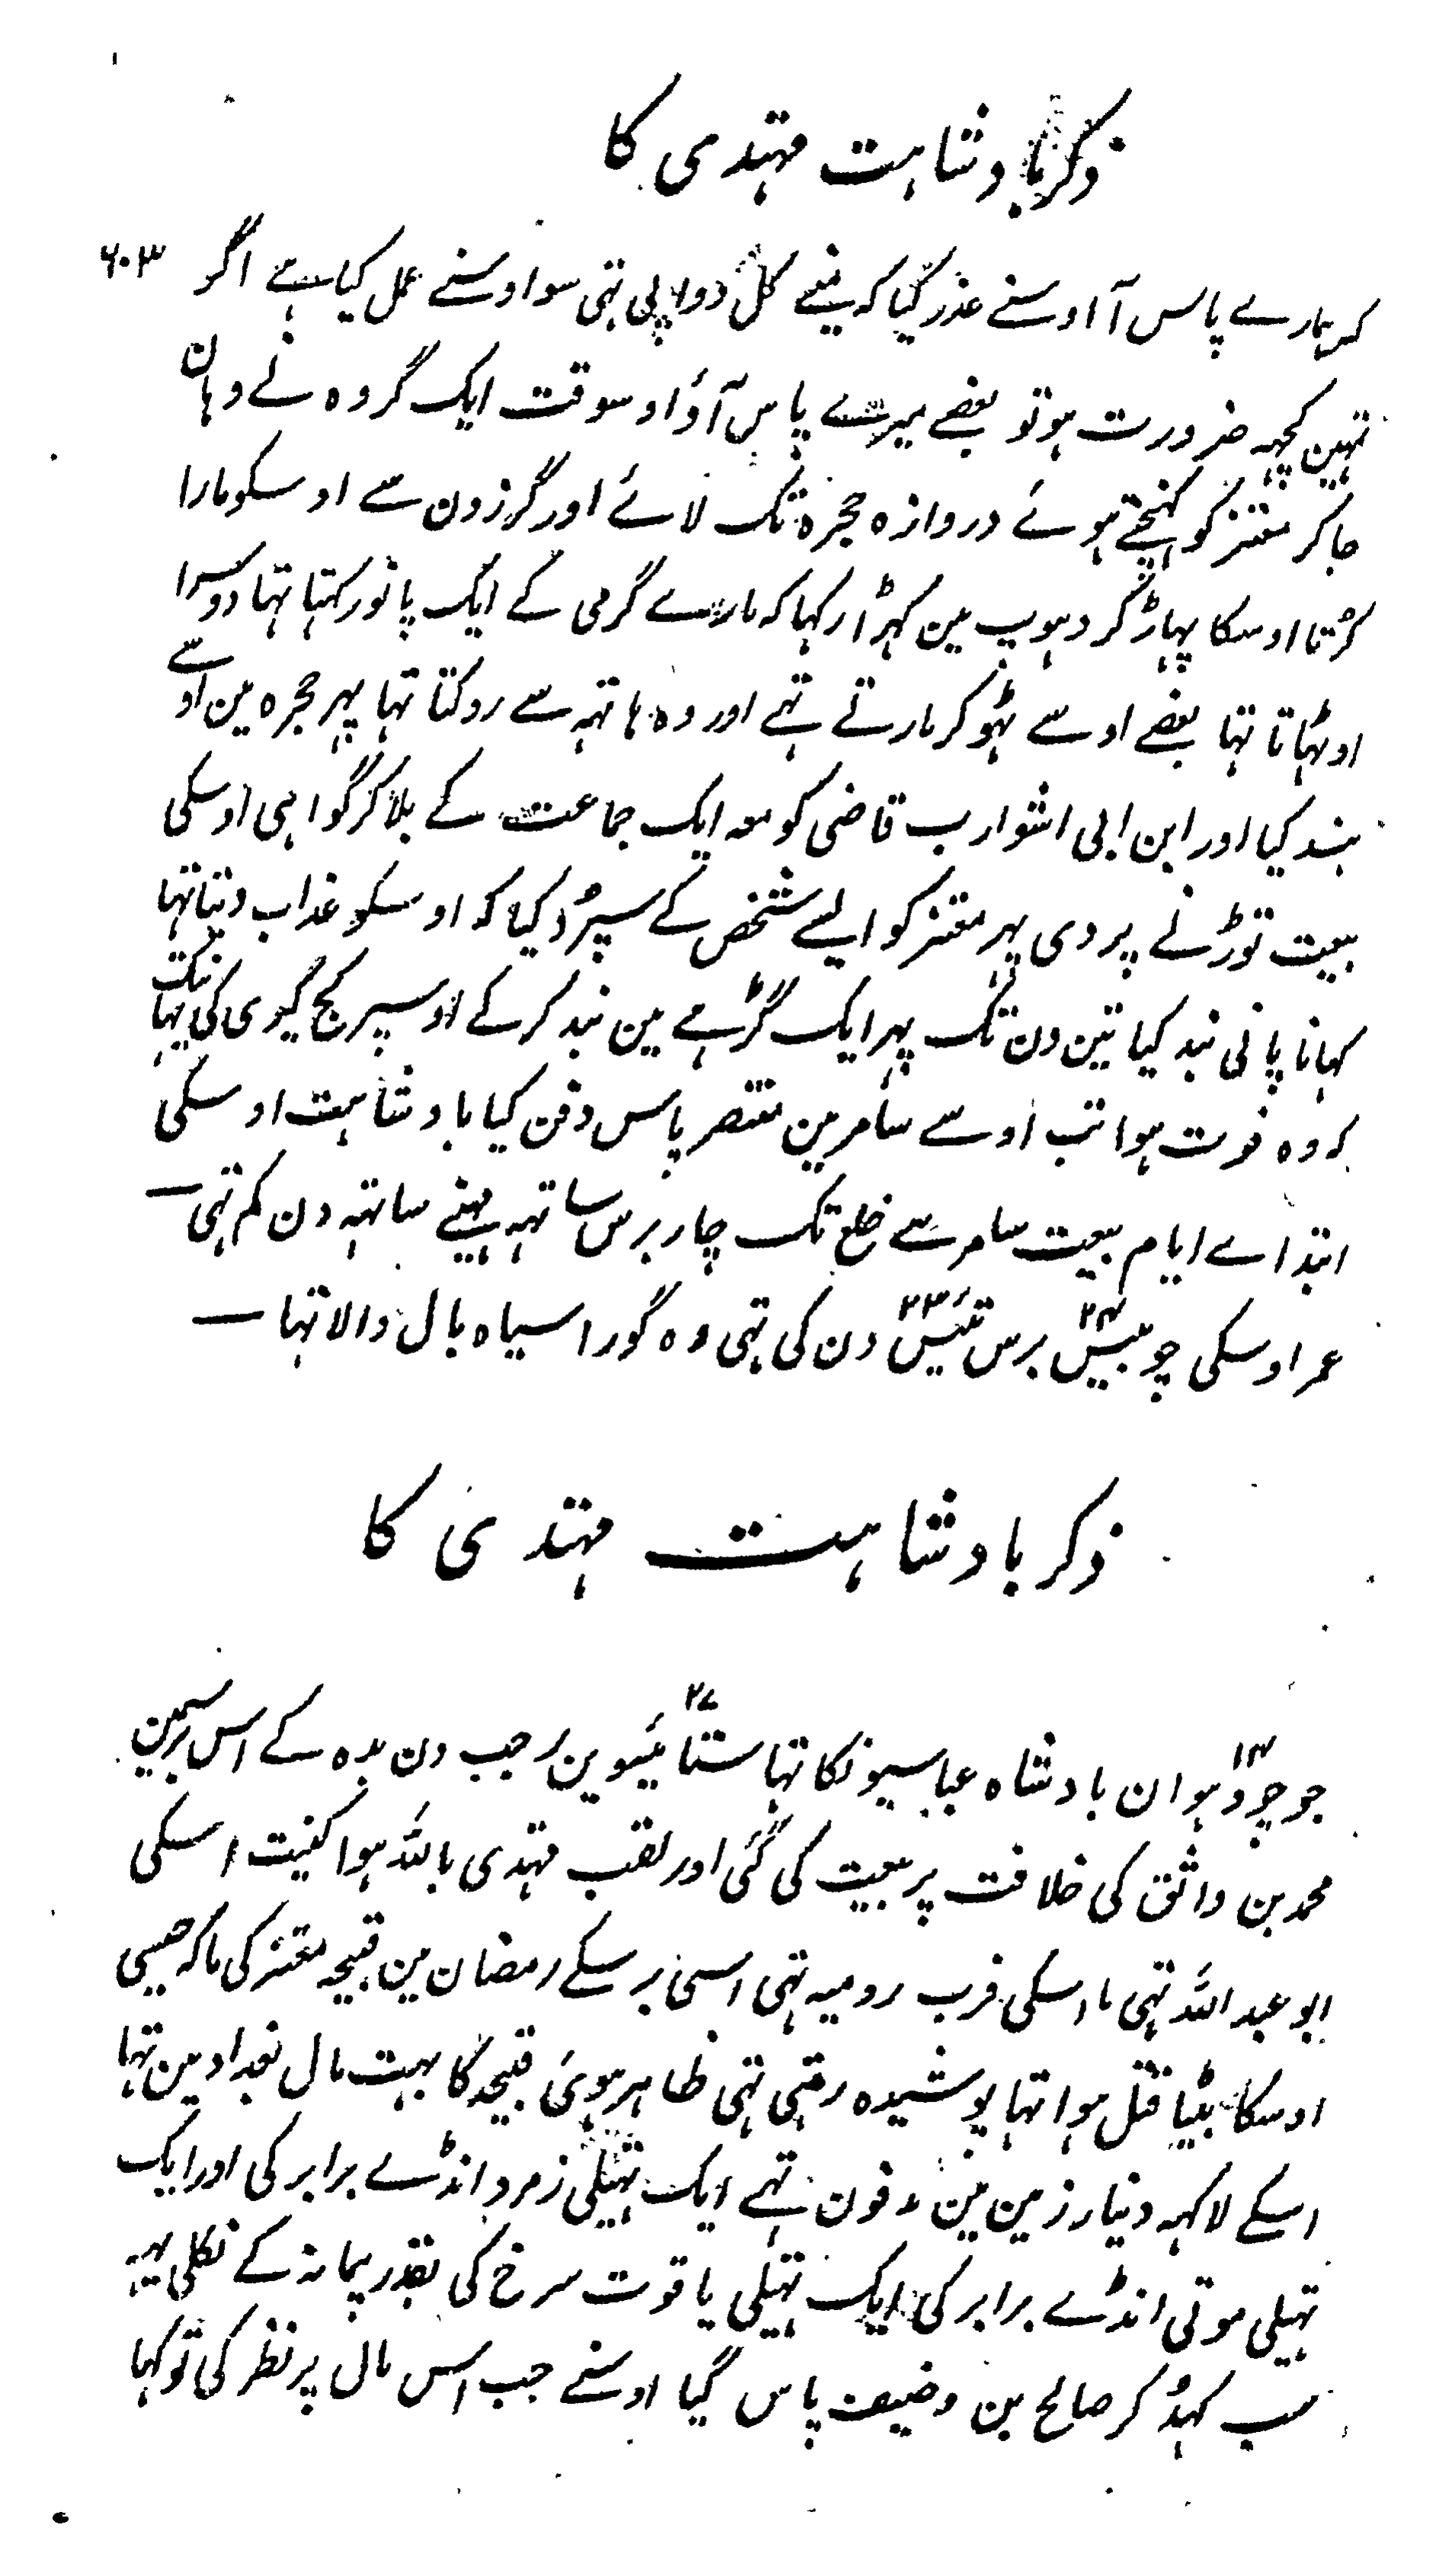 ذکر بادشاہت مہتدی کا
۶۰۳
کہ ہمارے پاس آ اوسنے عذر کیا کہ مینے کل دوا پی تہی سو اوسنے عمل کیا ہے اگر
تمہین کچہہ ضرورت ہو تو بعضے میرے پاس آؤ اوسوقت ایک گروہ نے وہان
جاکر معتز کو کہنچتے ہوئے دروازہ حجرہ تک لائے اور گرزون سے اوسکو مارا
کرتا اوسکا پہاڑ کر دہوپ مین کہڑا رکہا کہ مارے گرمی کے ایک پانو رکہتا تہا دوسرا
اوٹہاتا تہا بعضے اوسے ٹہوکر مارتے تہے اور وہ ہاتہہ سے روکتا تہا پہر حجرہ مین اوسے
بند کیا اور ابن ابی اشوارب قاضی کو معہ ایک جماعت کے بلا کر گواہی اوسکی
بیعت توڑنے پر دی پہر معتز کو ایسے شخص کے سپرد کیا کہ اوسکو عذاب دیتا تہا
کہانا پانی بند کیا تین دن تک پہر ایک گڑہے مین بند کر کے اوسپر گچ گیری کی یہانتک
کہ وہ فوت ہوا تب اوسے سامر مین منتصر پاس دفن کیا بادشاہت اوسکی
ابتداے ایام بیعت سامر سے خلع تک چار برس ساتہہ مہینے ساتہہ دن کم تہی ـــ
عمر اوسکی چوبیس ۲۴ برس تیئیس ۲۳ دن کی تہی وہ گورا سیاہ بال والا تہا ـــ
ذکر بادشاہت مہتدی کا
جو چودہوان ۱۴ بادشاہ عباسیونکا تہا ستائیسوین ۲۷ رجب دن بدہ کے اس برسمین
محمد بن واثق کی خلافت پر بیعت کی گئی اور لقب مہتدی باللہ ہوا کنیت اسکی
ابو عبد اللہ تہی ما اسکی قرب رومیہ تہی اسی برسکے رمضان مین قبیحہ معتز کی ما کہ جیسی
اوسکا بیٹا قتل ہوا تہا پوشیدہ رہتی تہی ظاہر ہوئی قبیحہ کا بہت مال بغداد مین تہا
اسکے لاکہہ دینار زمین مین مدفون تہے ایک تہیلی زمرد انڈے برابر کی اور ایک
تہیلی موتی انڈے برابر کی ایک تہیلی یاقوت سرخ کی بقدر پیمانہ کے نکلی یہہ
سب کہد کر صالح بن وضیف پاس گیا اوسنے جب اس مال پر نظر کی تو کہا